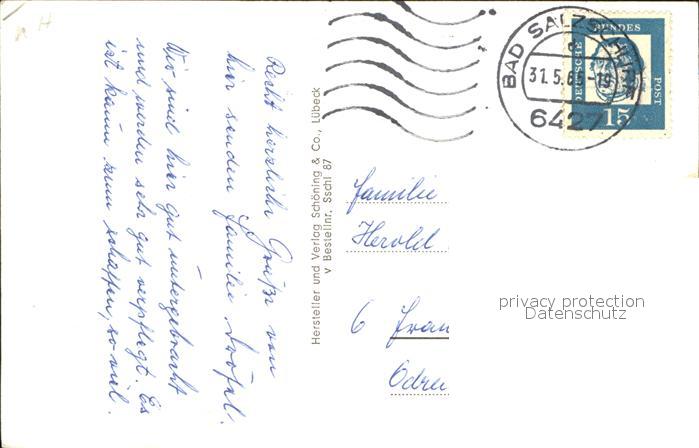 Recht herzliche Grüße von
hier senden Familie
Wir sind hier gut untergebracht
und werden sehr gut verpflegt. Es
ist kaum zum schaffen, so viel.
Hersteller und Verlag Schöning & Co., Lübeck
v Bestellnr. Sschl 87
BAD SALZSCHLIRF
31.5.66-19
6427
DEUTSCHE BUNDESPOST
15
Familie
Herold
6 Fran
privacy protection
Datenschutz